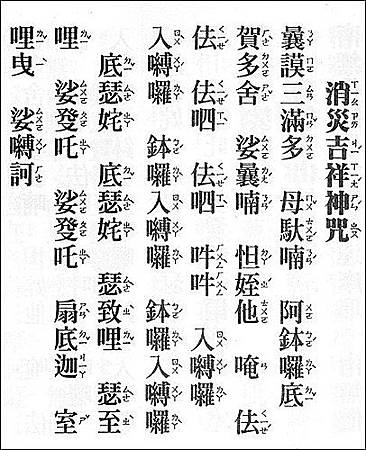 消災吉祥神咒
曩謨三滿多 母馱喃 阿鉢囉底
賀多舍 娑曩喃 怛姪他 唵 佉
佉 佉呬 佉呬 吽吽 入嚩囉
入嚩囉 鉢囉入嚩囉 鉢囉入嚩囉
底瑟姹 底瑟姹 瑟致哩 瑟至
哩 娑癹吒 娑癹吒 扇底迦 室
哩曳 娑嚩訶